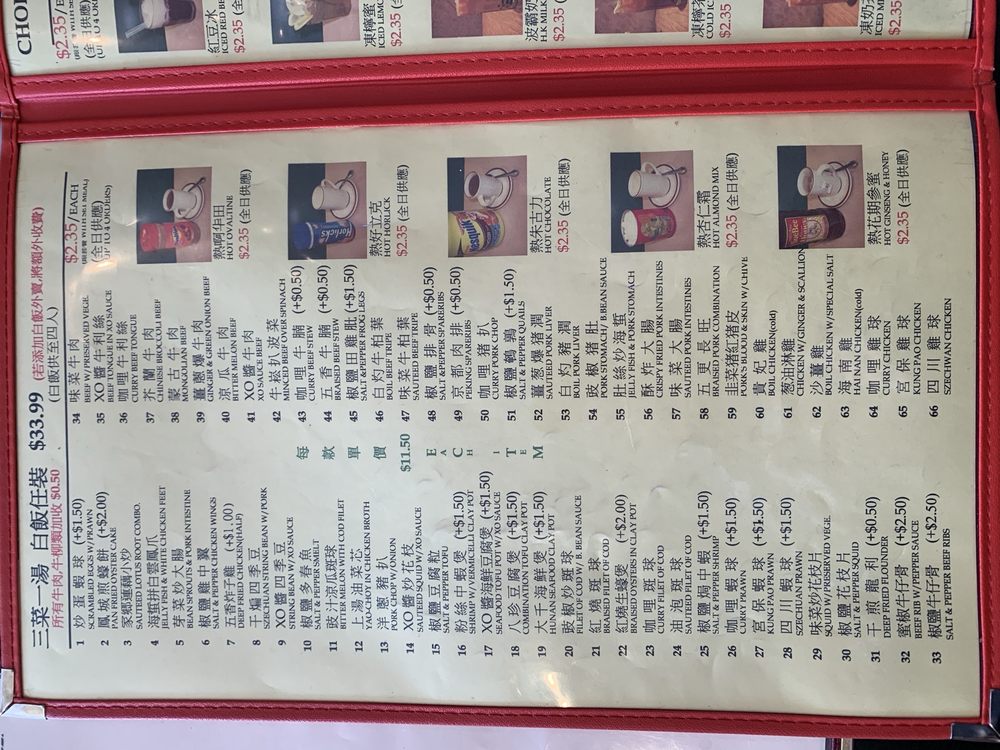 三菜一湯 白飯任裝 $33.99 (若添加白飯外賣,將額外收費)
所有牛肉,牛柳類加收 $0.50 (白飯供至四人)
1 炒蛋蝦球 (+$1.50)
SCRAMBLED EGGS W/PRAWN
2 鳳城煎蠔餅 (+$2.00)
PAN FRIED OYSTER CAKE
3 家鄉蓮藕小炒
SAUTEED LOTUS ROOT COMBO.
4 海蜇拼白雲鳳爪
JELLY FISH & WHITE CHICKEN FEET
5 芽菜炒大腸
BEAN SPROUTS & PORK INTESTINE
6 椒鹽雞中翼
SALT & PEPPER CHICKEN WINGS
7 五香炸子雞 (+$1.00)
DEEP FRIED CHICKEN(HALF)
8 干煸四季豆
SZECHUAN STRING BEAN W/PORK
9 XO醬四季豆
STRING BEAN W/XO SAUCE
10 椒鹽多春魚
SALT & PEPPER SMELT
11 豉汁涼瓜斑球
BITTER MELON WITH COD FILET
12 上湯油菜芯
YAO CHOY IN CHICKEN BROTH
13 洋蔥豬扒
PORK CHOP W/ONION
14 XO醬花枝
SAUTEED SQUID W/XO SAUCE
15 椒鹽豆腐粒
SALT & PEPPER TOFU
16 粉絲中蝦煲 (+$1.50)
SHRIMP W/VERMICELLI CLAY POT
17 XO醬海鮮豆腐煲 (+$1.50)
SEAFOOD TOFU POT W/XO SAUCE
18 八珍豆腐煲 (+$1.50)
COMBINATION TOFU CLAY POT
19 大千海鮮煲 (+$1.50)
HUNAN SEAFOOD CLAY POT
20 豉椒炒斑球
FILET OF COD W/ B BEAN SAUCE
21 紅燒斑球
BRAISED FILET OF COD
22 紅燒生蠔煲 (+$2.00)
BRAISED OYSTERS IN CLAY POT
23 咖喱斑球
CURRY FILET OF COD
24 油泡斑球
SAUTEED FILET OF COD
25 椒鹽焗中蝦 (+$1.50)
SALT & PEPPER SHRIMP
26 咖喱蝦球 (+$1.50)
CURRY PRAWN
27 宮保蝦球 (+$1.50)
KUNG PAO PRAWN
28 四川蝦球 (+$1.50)
SZECHUAN PRAWN
29 味菜炒花枝片
SQUID W/PRESERVED VEGE.
30 椒鹽花枝片
SALT & PEPPER SQUID
31 干煎龍利 (+$0.50)
DEEP FRIED FLOUNDER
32 蜜椒牛仔骨 (+$2.50)
BEEF RIB W/PEPPER SAUCE
33 椒鹽牛仔骨 (+$2.50)
SALT & PEPPER BEEF RIBS
每款單價 $11.50 EACH ITEM
34 味菜牛肉
BEEF W/PRESERVED VEGE.
35 XO醬牛利絲
BEEF TONGUE IN XO SAUCE
36 咖喱牛利絲
CURRY BEEF TONGUE
37 芥蘭牛肉
CHINESE BROCCOLI BEEF
38 蒙古牛肉
MONGOLIAN BEEF
39 薑蔥牛肉
GINGER & GREEN ONION BEEF
40 涼瓜牛肉
BITTER MELON BEEF
41 XO醬牛肉
XO SAUCE BEEF
42 牛崧扒波菜
MINCED BEEF OVER SPINACH
43 咖喱牛腩 (+$0.50)
CURRY BEEF STEW
44 五香牛腩 (+$0.50)
BRAISED BEEF STEW
45 椒鹽田雞肶 (+$1.50)
SALT & PEPPER FROG LEGS
46 白灼牛柏葉
BOIL BEEF TRIPE
47 味菜牛柏葉
SAUTEED BEEF TRIPE
48 椒鹽排骨 (+$0.50)
SALT & PEPPER SPARERIBS
49 京都肉排 (+$0.50)
PEKING SPARERIBS
50 咖喱豬扒
CURRY PORK CHOP
51 椒鹽鵪鶉 (+$1.50)
SALT & PEPPER QUAILS
52 薑蔥爆豬潤
SAUTEED PORK LIVER
53 白灼豬潤
BOIL PORK LIVER
54 豉椒豬肚
PORK STOMACH/ B.BEAN SAUCE
55 肚絲炒海蜇
JELLY FISH & PORK STOMACH
56 酥炸大腸
CRISPY FRIED PORK INTESTINES
57 味菜大腸
SAUTEED PORK INTESTINES
58 五更長旺
BRAISED PORK COMBINATION
59 韭菜猪紅猪皮
PORK'S BLOOD & SKIN W/CHIVE
60 貴妃雞
BOIL CHICKEN(cold)
61 葱油淋雞
CHICKEN W/GINGER & SCALLION
62 沙薑雞
BOIL CHICKEN W/SPECIAL SALT
63 海南雞
HAI NAN CHICKEN(cold)
64 咖喱雞球
CURRY CHICKEN
65 宮保雞球
KUNG PAO CHICKEN
66 四川雞球
SZECHWAN CHICKEN
$2.35/EACH
(全日供應)
(UP TO 4 ORDERS)
熱啊华田
HOT OVALTINE
$2.35 (全日供應)
Horlicks
熱好立克
HOT HORLICK
$2.35 (全日供應)
Nesquik
熱朱古力
HOT CHOCOLATE
$2.35 (全日供應)
熱杏仁霜
HOT ALMOND MIX
$2.35 (全日供應)
熱花期參蜜
HOT GINSENG & HONEY
$2.35 (全日供應)
$2.35/E
(全日供應)
紅豆冰
ICED RED BE
$2.35 (全
凍檸蜜
ICED LEMO
$2.35 (全
波霸奶
H.K MILK
$2.35
凍檸茶
COLD IC
$2.35 (
凍奶
ICED MI
$2.35